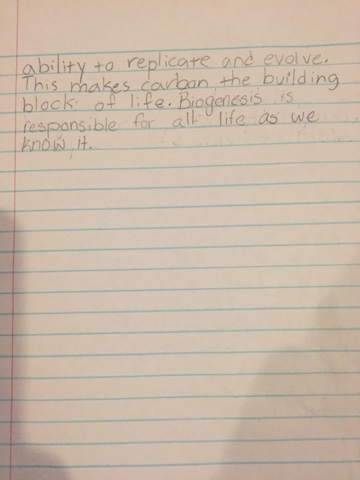 ability to replicate and evolve.
This makes carbon the building
block of life. Biogenesis is
responsible for all life as we
know it.